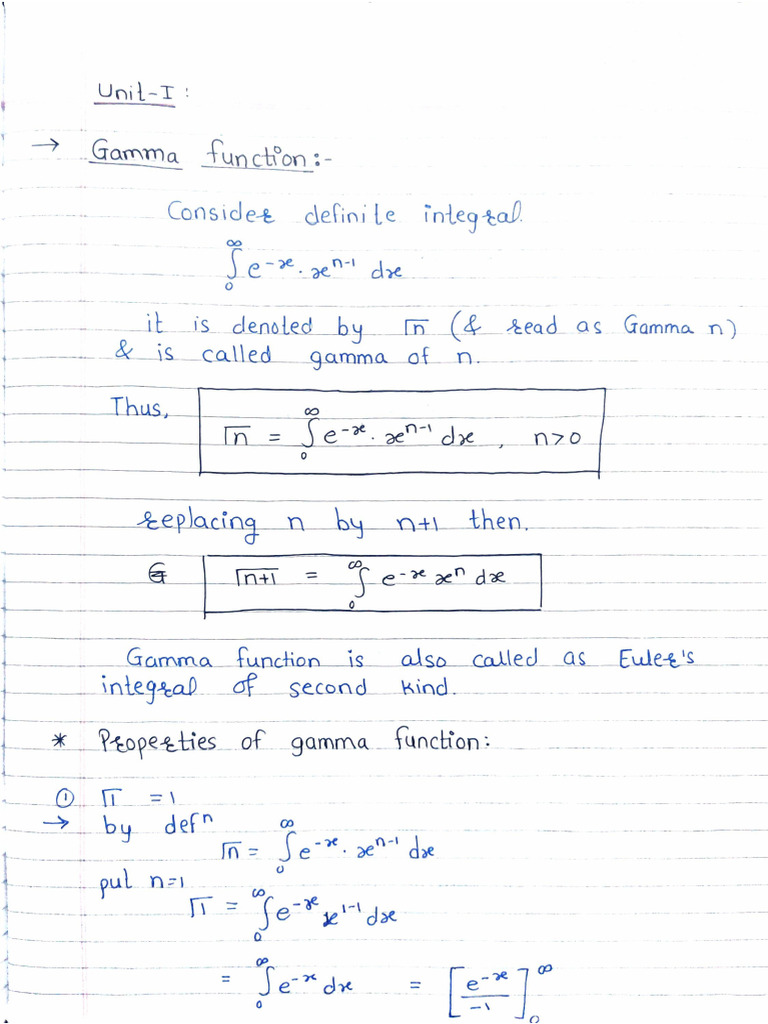 Unit-I :
→ Gamma function:-
Consider definite integral.
∫₀^∞ e^{-x} . x^{n-1} dx
it is denoted by Γn (& read as Gamma n)
& is called gamma of n.
Thus, Γn = ∫₀^∞ e^{-x} . x^{n-1} dx , n>0
replacing n by n+1 then.
G Γn+1 = ∫₀^∞ e^{-x} x^n dx
Gamma function is also called as Euler's
integral of second kind.
* Properties of gamma function:
① Γ1 = 1
→ by defⁿ
Γn = ∫₀^∞ e^{-x} . x^{n-1} dx
put n=1
Γ1 = ∫₀^∞ e^{-x} x^{1-1} dx
= ∫₀^∞ e^{-x} dx = [e^{-x}/-1]₀^∞